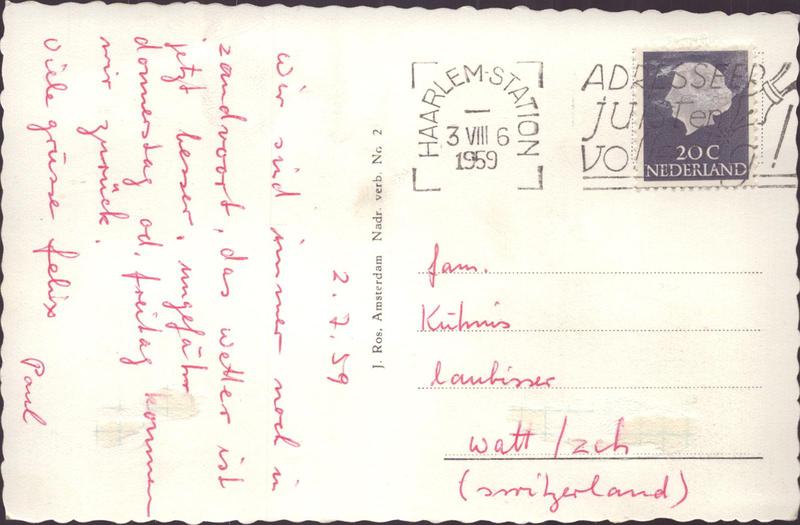 2.7.59
Wir sind immer noch in
zandvoort, das wetter ist
jetzt besser, ungefähr
donnerstag od. freitag kommen
wir zurück.
Viele grüsse felix
Paul
J. Ros, Amsterdam Nadr. verb. No. 2
HAARLEM-STATION
3 VIII 6
1959
ADRESSEER
JUIST en
VOLLEDIG!
20 C
NEDERLAND
fam.
Kühnis
laubisser
watt / zch
(switzerland)